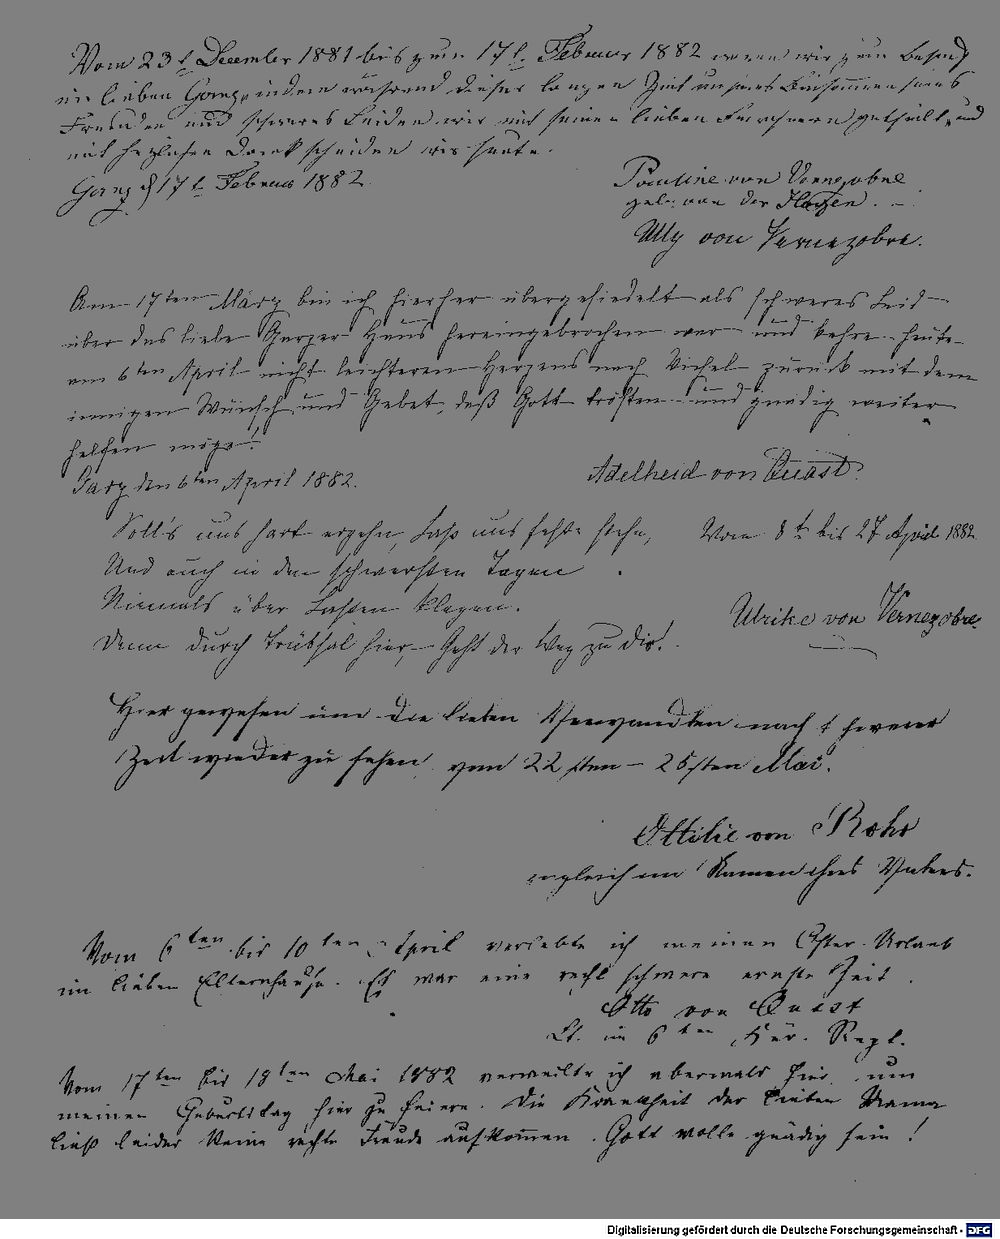 Vom 23t. December 1881 bis zum 17t. Februar 1882 waren wir zum Besuch
im lieben Garz, indem während dieser langen Zeit unseres Beisammenseins
Freuden und schweres Leiden wir mit seinen lieben Bewohnern getheilt, und
mit herzlichem Dank scheiden wir heute.
Garz d 17t. Februar 1882.
Pauline von Vernezobre
geb. von der Hagen.
Ully von Vernezobre.
Am 17ten März bin ich hierher übergesiedelt als schweres Leid
über das liebe Garzer Haus hereingebrochen war und kehre heute
am 6ten April nicht leichteren Herzens nach Vichel zurück mit dem
innigen Wunsch und Gebet, daß Gott trösten und gnädig weiter
helfen möge!
Garz den 6ten April 1882.
Adelheid von Quast.
Soll's uns hart ergehn, Laß uns feste stehn,
Vom 8t. bis 27 April 1882.
Und auch in den schwersten Tagen
Niemals über Lasten klagen.
Ulrike von Vernezobre.
Denn durch Trübsal hier, Geht der Weg zu dir!
Hier gewesen um die lieben Verwandten nach schwerer
Zeit wieder zu sehen, vom 22sten – 25sten Mai.
Ottilie von Rohr
zugleich im Namen ihres Vaters.
Vom 6ten bis 10ten April verlebte ich meinen Oster-Urlaub
im lieben Elternhause. Es war eine recht schwere ernste Zeit.
Otto von Quast
Lt. im 6ten Kür. Regt.
Vom 17ten bis 19ten Mai 1882 verweilte ich abermals hier, um
meinen Geburtstag hier zu feiern. Die Krankheit der lieben Mama
ließ leider keine rechte Freude aufkommen. Gott wolle gnädig sein!
Digitalisierung gefördert durch die Deutsche Forschungsgemeinschaft - DFG